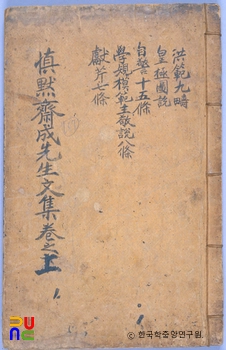 洪範九疇
皇極圖說
自警十五條
學規模範主敬說八條
獻芹七條
愼默齋成先生文集卷之上
© 한국학중앙연구원